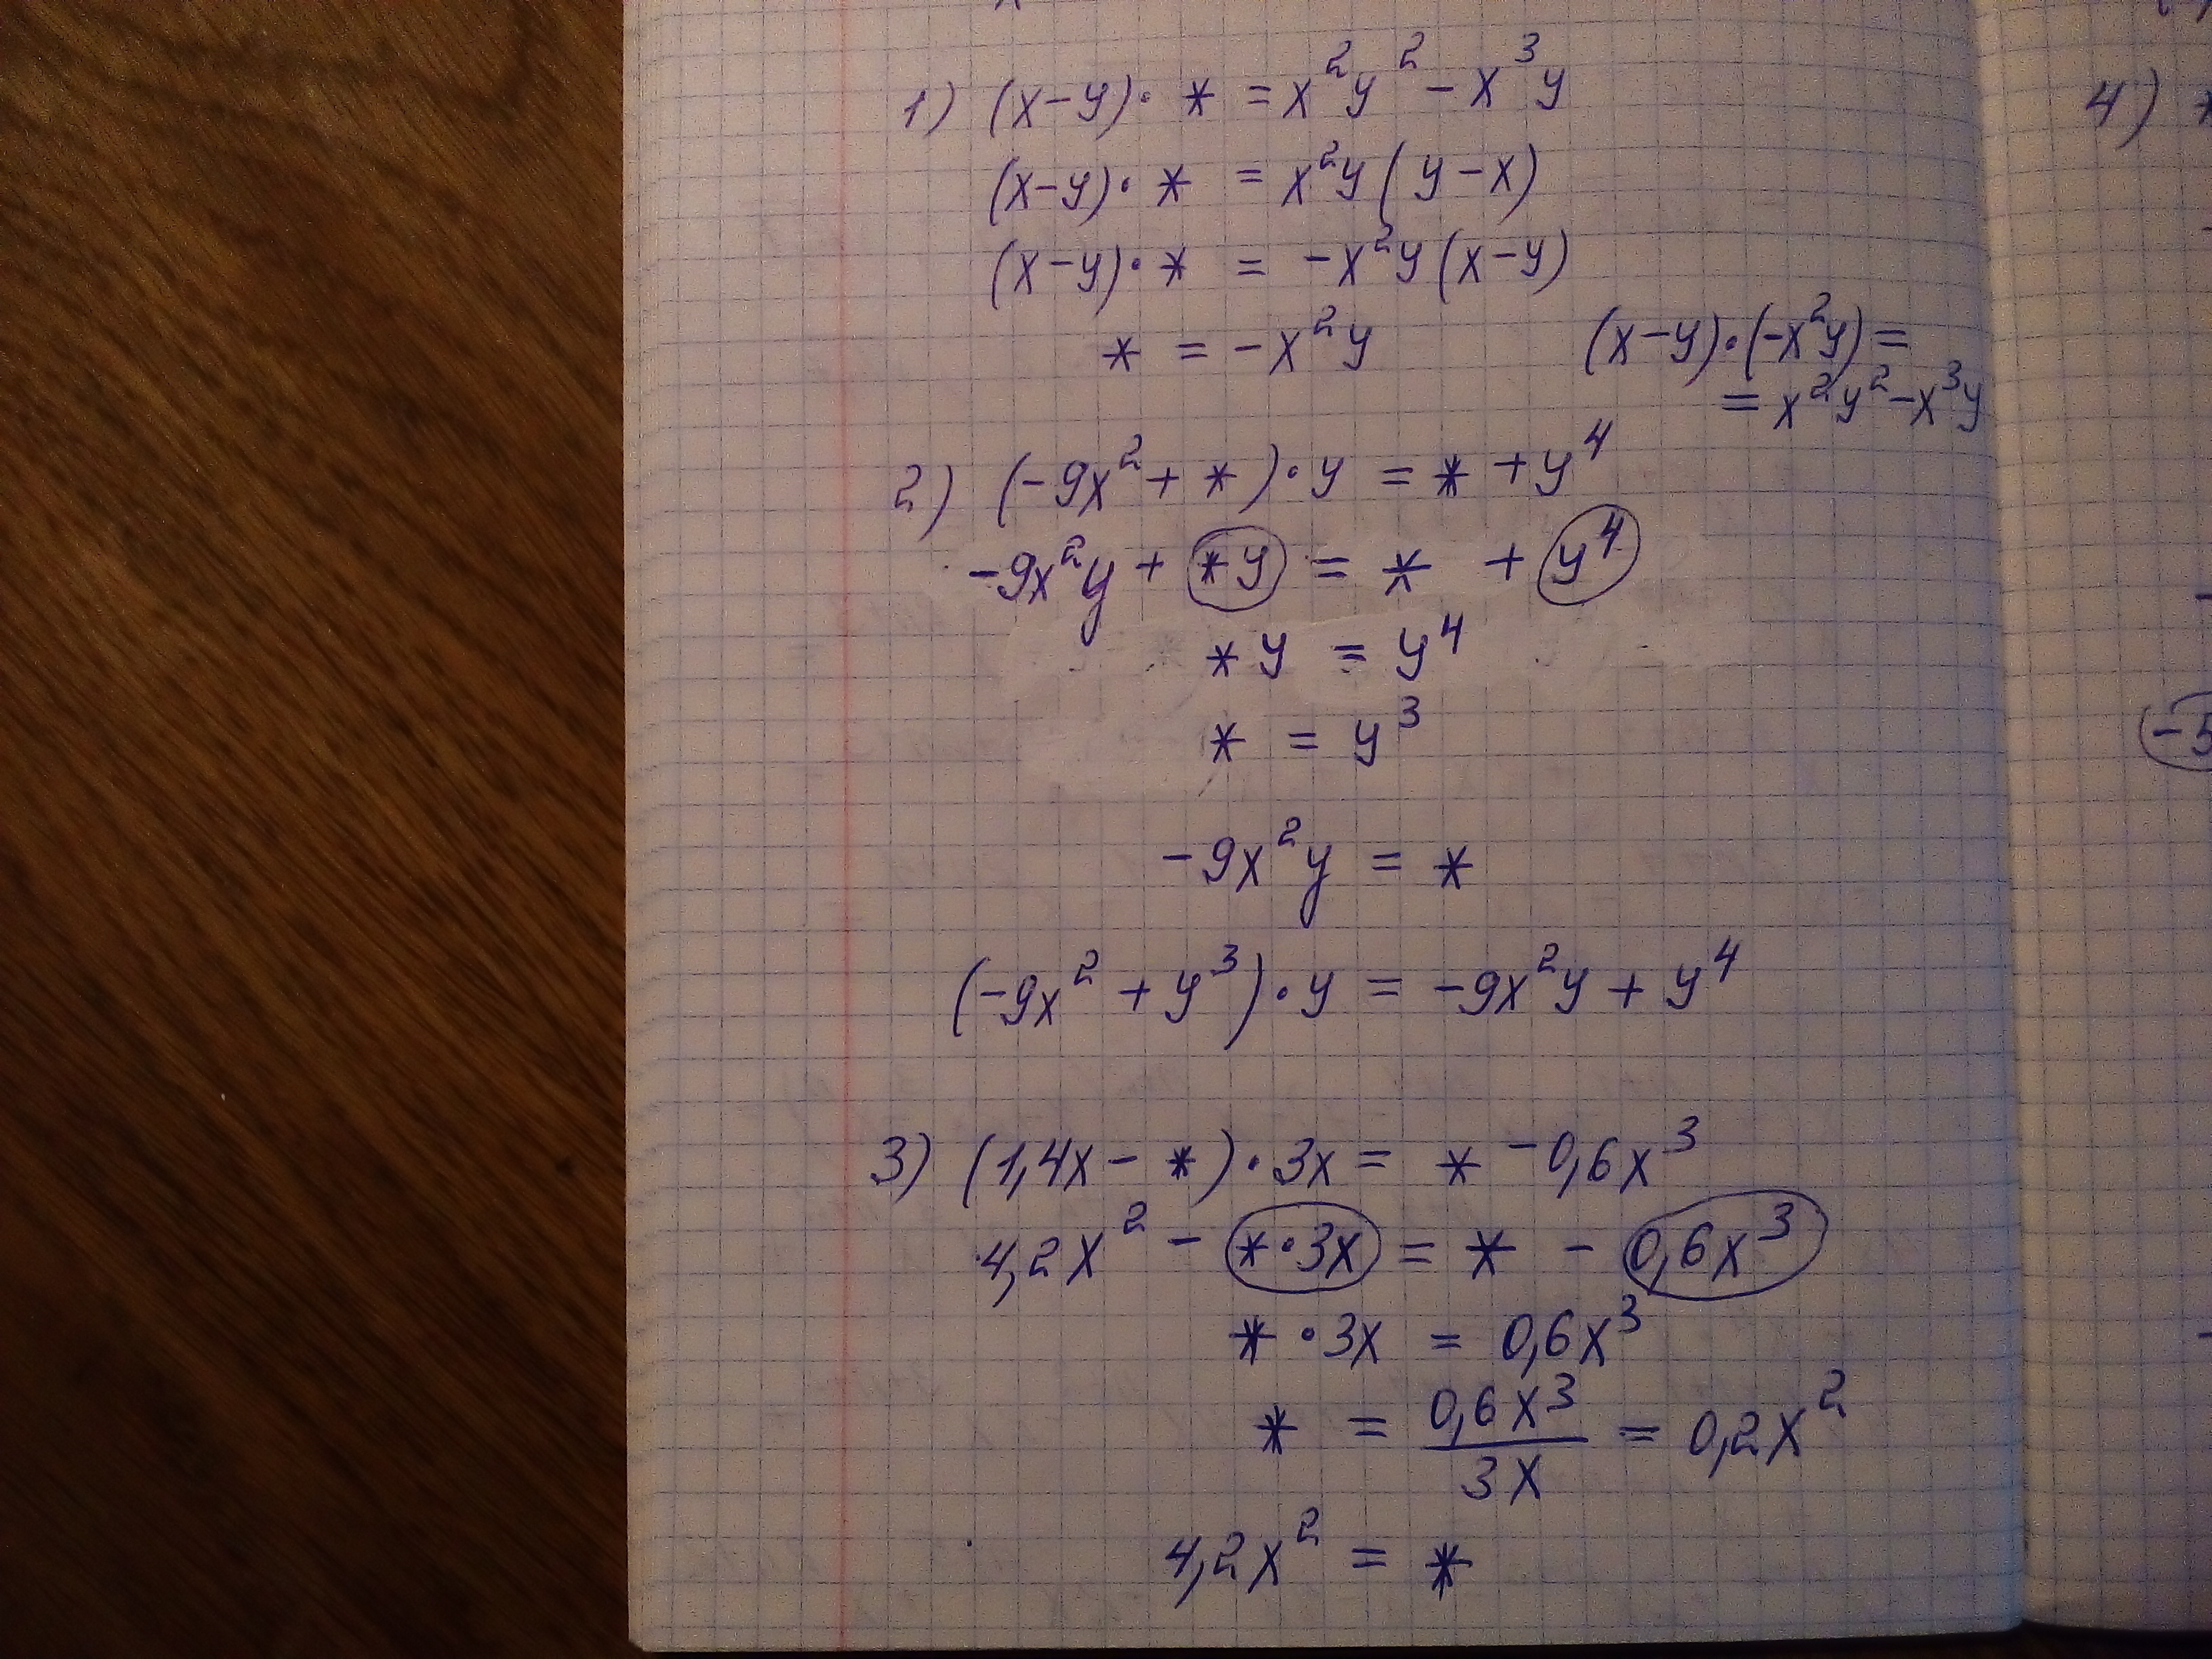 1) (x-y)· * = x²y² - x³y
(x-y)· * = x²y(y-x)
(x-y)· * = -x²y(x-y)
* = -x²y
(x-y)·(-x²y) =
= x²y² - x³y
2) (-9x² + *)·y = * + y⁴
-9x²y + *y = * + y⁴
*y = y⁴
* = y³
-9x²y = *
(-9x² + y³)·y = -9x²y + y⁴
3) (1,4x - *)·3x = * - 0,6x³
4,2x² - *·3x = * - 0,6x³
*·3x = 0,6x³
* = 0,6x³/3x = 0,2x²
4,2x² = *
4) *
(-5